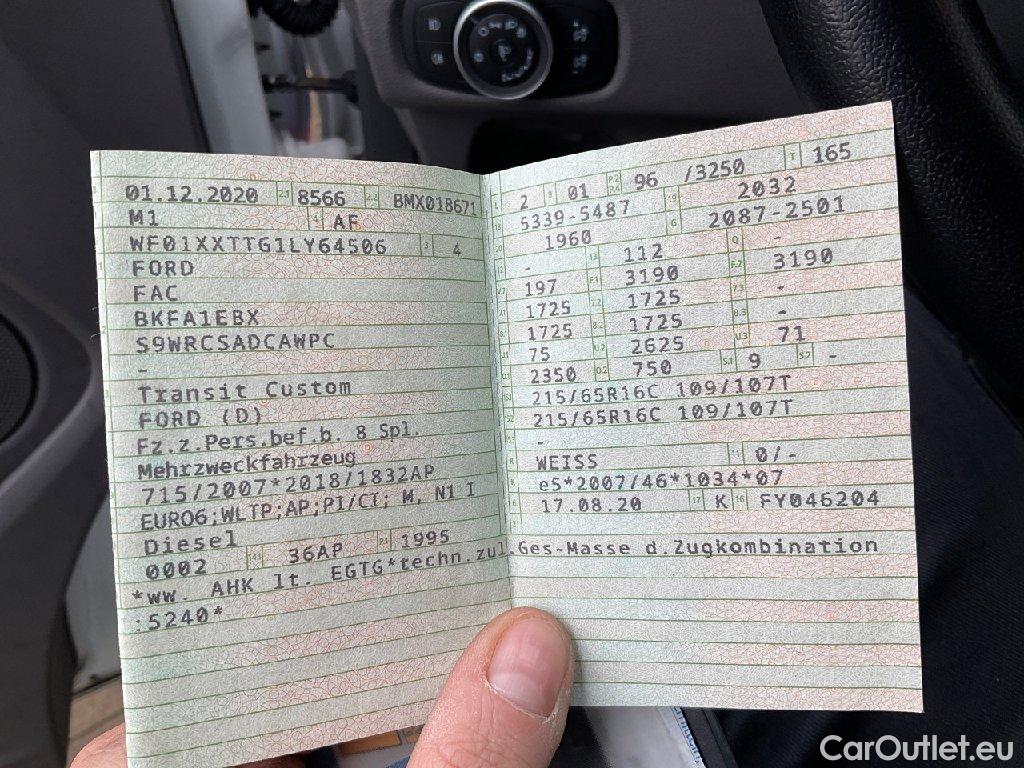 01.12.2020 8566 BMX018671
M1 AF
WF01XXTTG1LY64506 4
FORD
FAC
BKFA1EBX
S9WRCSADCAWPC
-
Transit Custom
FORD (D)
Fz.z.Pers.bef.b. 8 Spl.
Mehrzweckfahrzeug
715/2007*2018/1832AP
EURO6;WLTP;AP;PI/CI; M, N1 I
Diesel
0002 36AP 1995
*ww. AHK lt. EGTG*techn.zul.Ges-Masse d.Zugkombination
:5240*
2 01 96 /3250 165
5339-5487 2032
1960 2087-2501
- 112 -
197 3190 3190
1725 1725 -
1725 1725 -
75 2625 71
2350 750 9 -
215/65R16C 109/107T
215/65R16C 109/107T
-
WEISS 0/-
e5*2007/46*1034*07
17.08.20 K FY046204
CarOutlet.eu